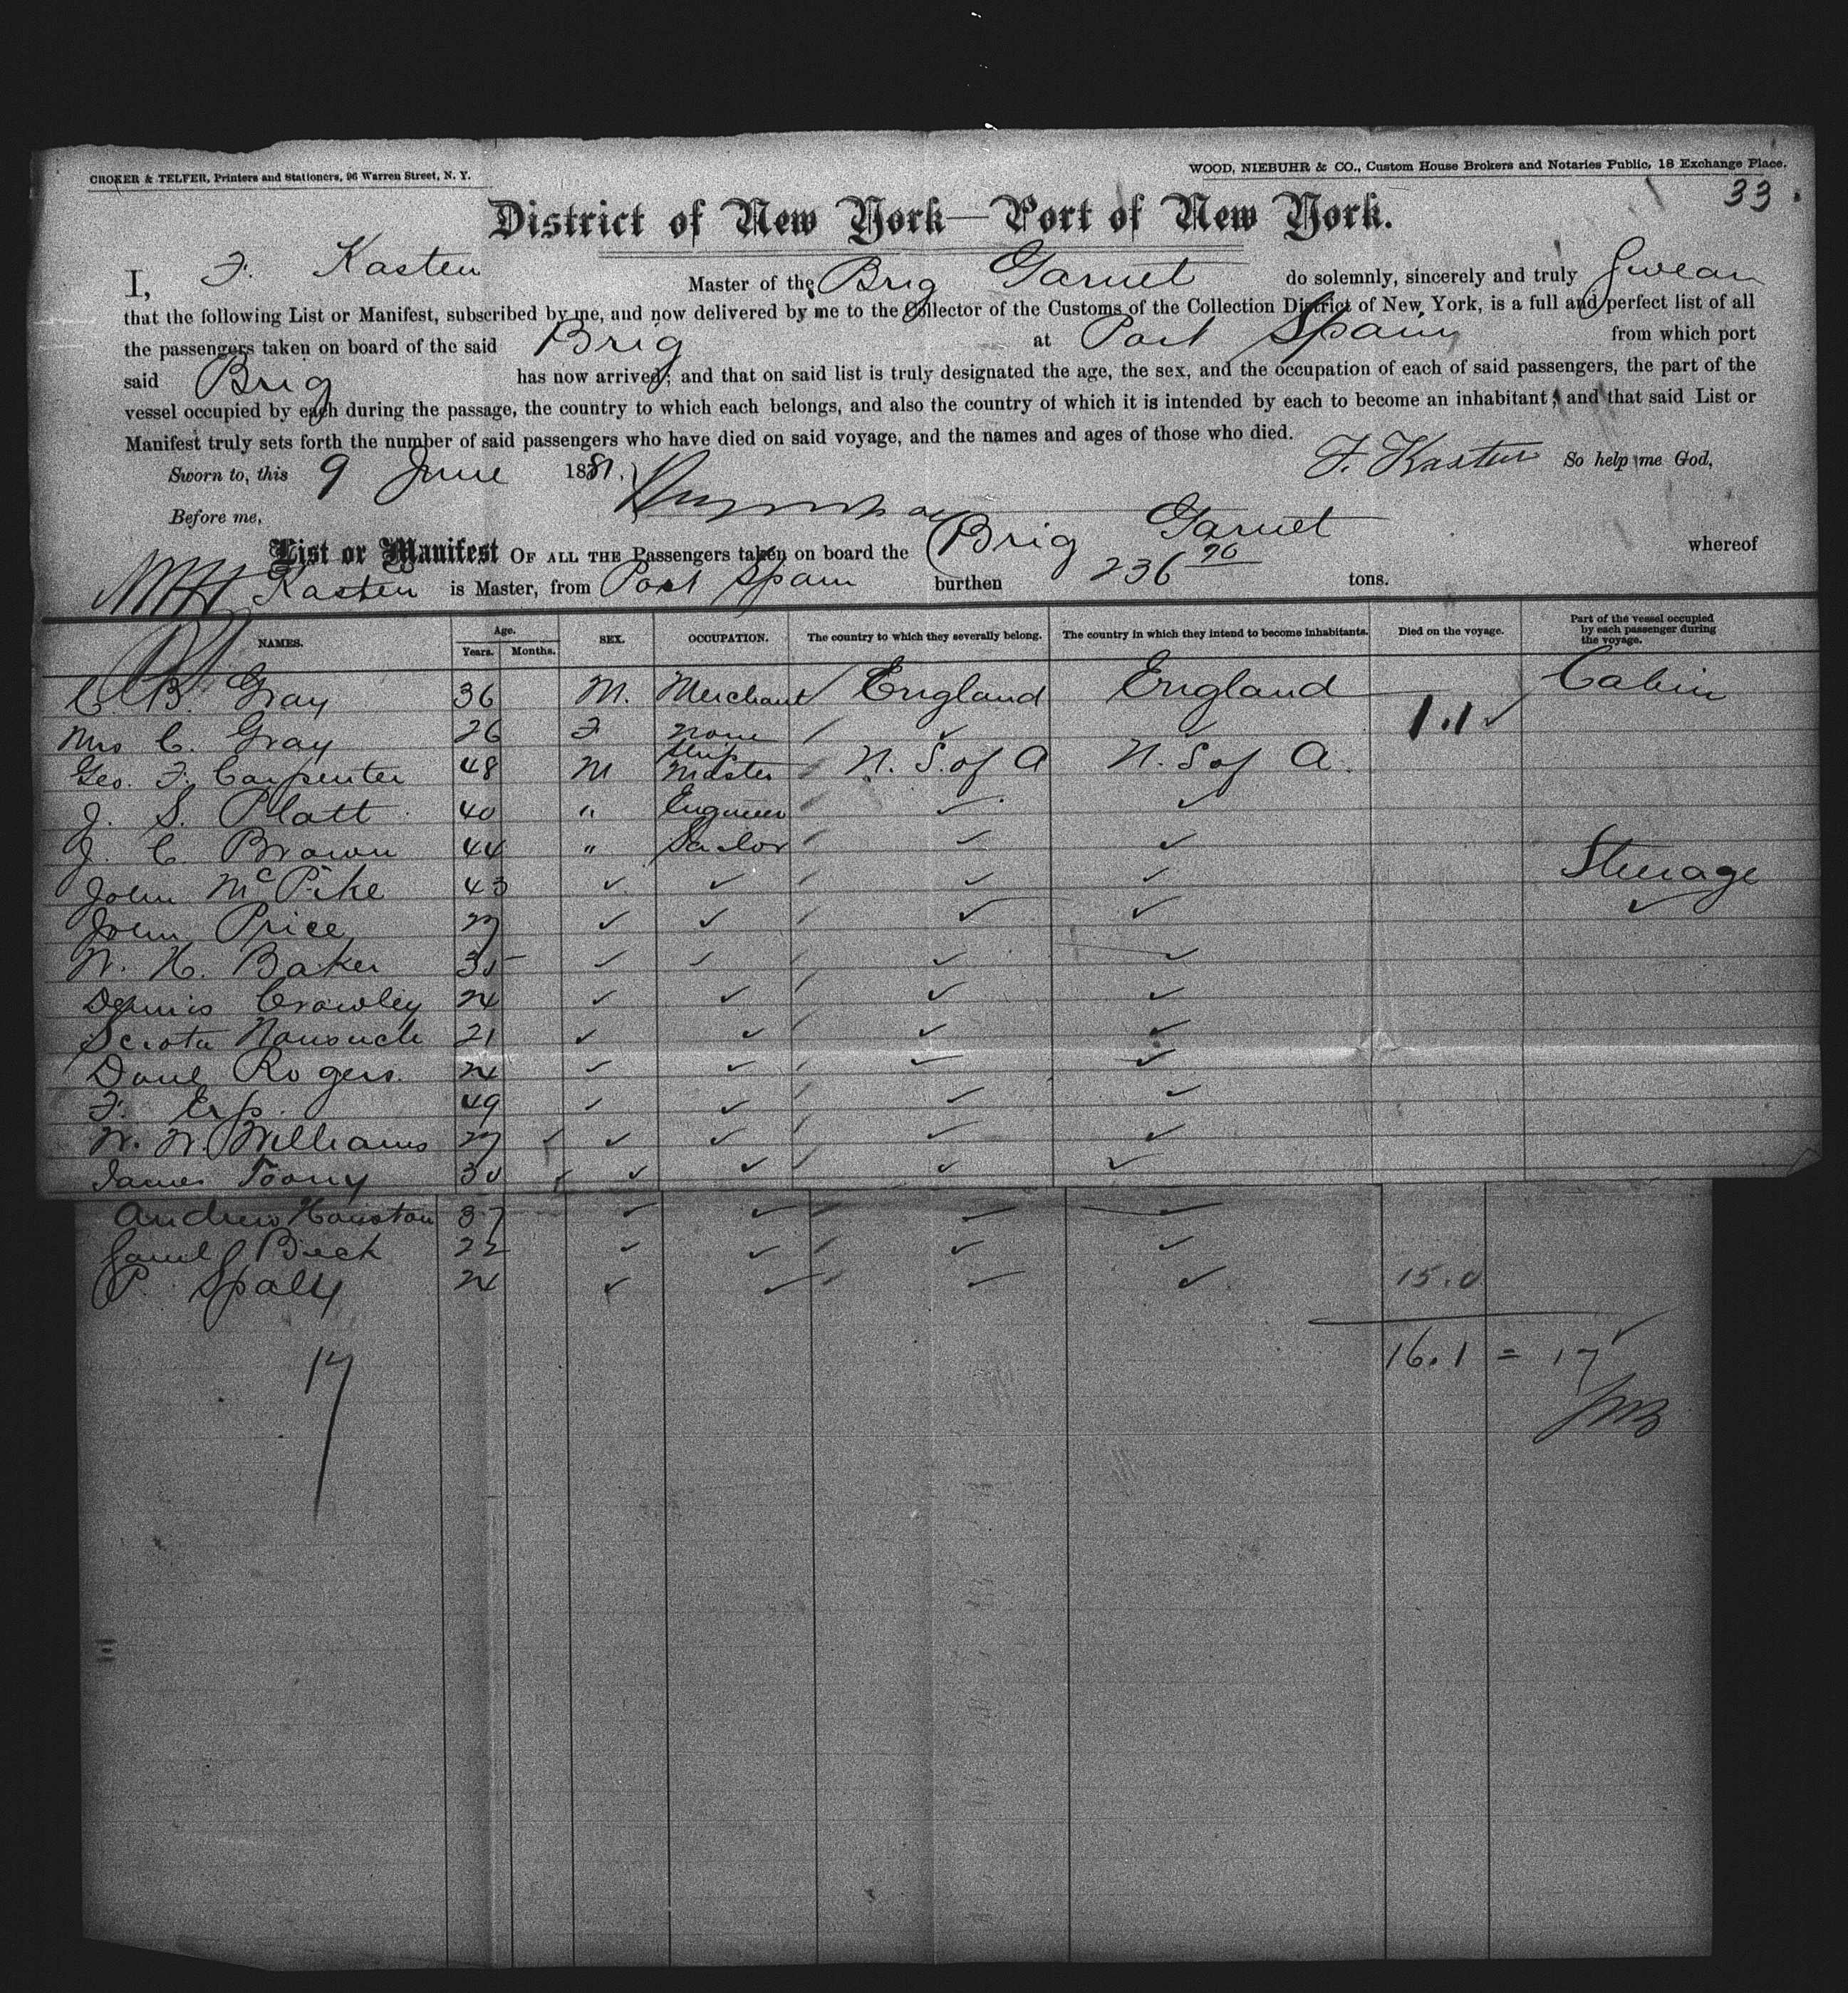 CROKER & TELFER, Printers and Stationers, 96 Warren Street, N. Y.
WOOD, NIEBUHR & CO., Custom House Brokers and Notaries Public, 18 Exchange Place.
33
District of New York—Port of New York.
I, F. Kasten Master of the Brig Garnet do solemnly, sincerely and truly Swear
that the following List or Manifest, subscribed by me, and now delivered by me to the Collector of the Customs of the Collection District of New York, is a full and perfect list of all
the passengers taken on board of the said Brig at Port Spain from which port
said Brig has now arrived; and that on said list is truly designated the age, the sex, and the occupation of each of said passengers, the part of the
vessel occupied by each during the passage, the country to which each belongs, and also the country of which it is intended by each to become an inhabitant; and that said List or
Manifest truly sets forth the number of said passengers who have died on said voyage, and the names and ages of those who died.
Sworn to, this 9 June 1881. F. Kasten So help me God,
Before me,
List or Manifest OF ALL THE Passengers taken on board the Brig Garnet whereof
Kasten is Master, from Port Spain burthen 236 90 tons.
NAMES. Age. Years. Months. SEX. OCCUPATION. The country to which they severally belong. The country in which they intend to become inhabitants. Died on the voyage. Part of the vessel occupied by each passenger during the voyage.
C. B. Gray 36 M. Merchant England England Cabin
Mrs C. Gray 26 F none ✓ ✓ 1.1 ✓
Geo. F. Carpenter 48 M Ship Master U. S. of A U. S of A.
J. S. Platt 40 " Engineer ✓ ✓
J. C. Brown 44 " Sailor ✓ ✓ Steerage
John McPike 43 ✓ ✓ ✓ ✓ ✓
John Price 27 ✓ ✓ ✓ ✓
W. H. Baker 35 ✓ ✓ ✓ ✓
Dennis Crowley 24 ✓ ✓ ✓ ✓
21 ✓ ✓ ✓ ✓
Danl Rogers. 24 ✓ ✓ ✓ ✓
F. Erp. 49 ✓ ✓ ✓ ✓
W. W. Williams 27 ✓ ✓ ✓ ✓ ✓
James Toony 30 ✓ ✓ ✓ ✓ ✓
Andrew Houston 37 ✓ ✓ ✓ ✓
Saml Beck 22 ✓ ✓ ✓ ✓
P. Spally 24 ✓ ✓ ✓ ✓ 15.0
17 16.1 = 17 ✓